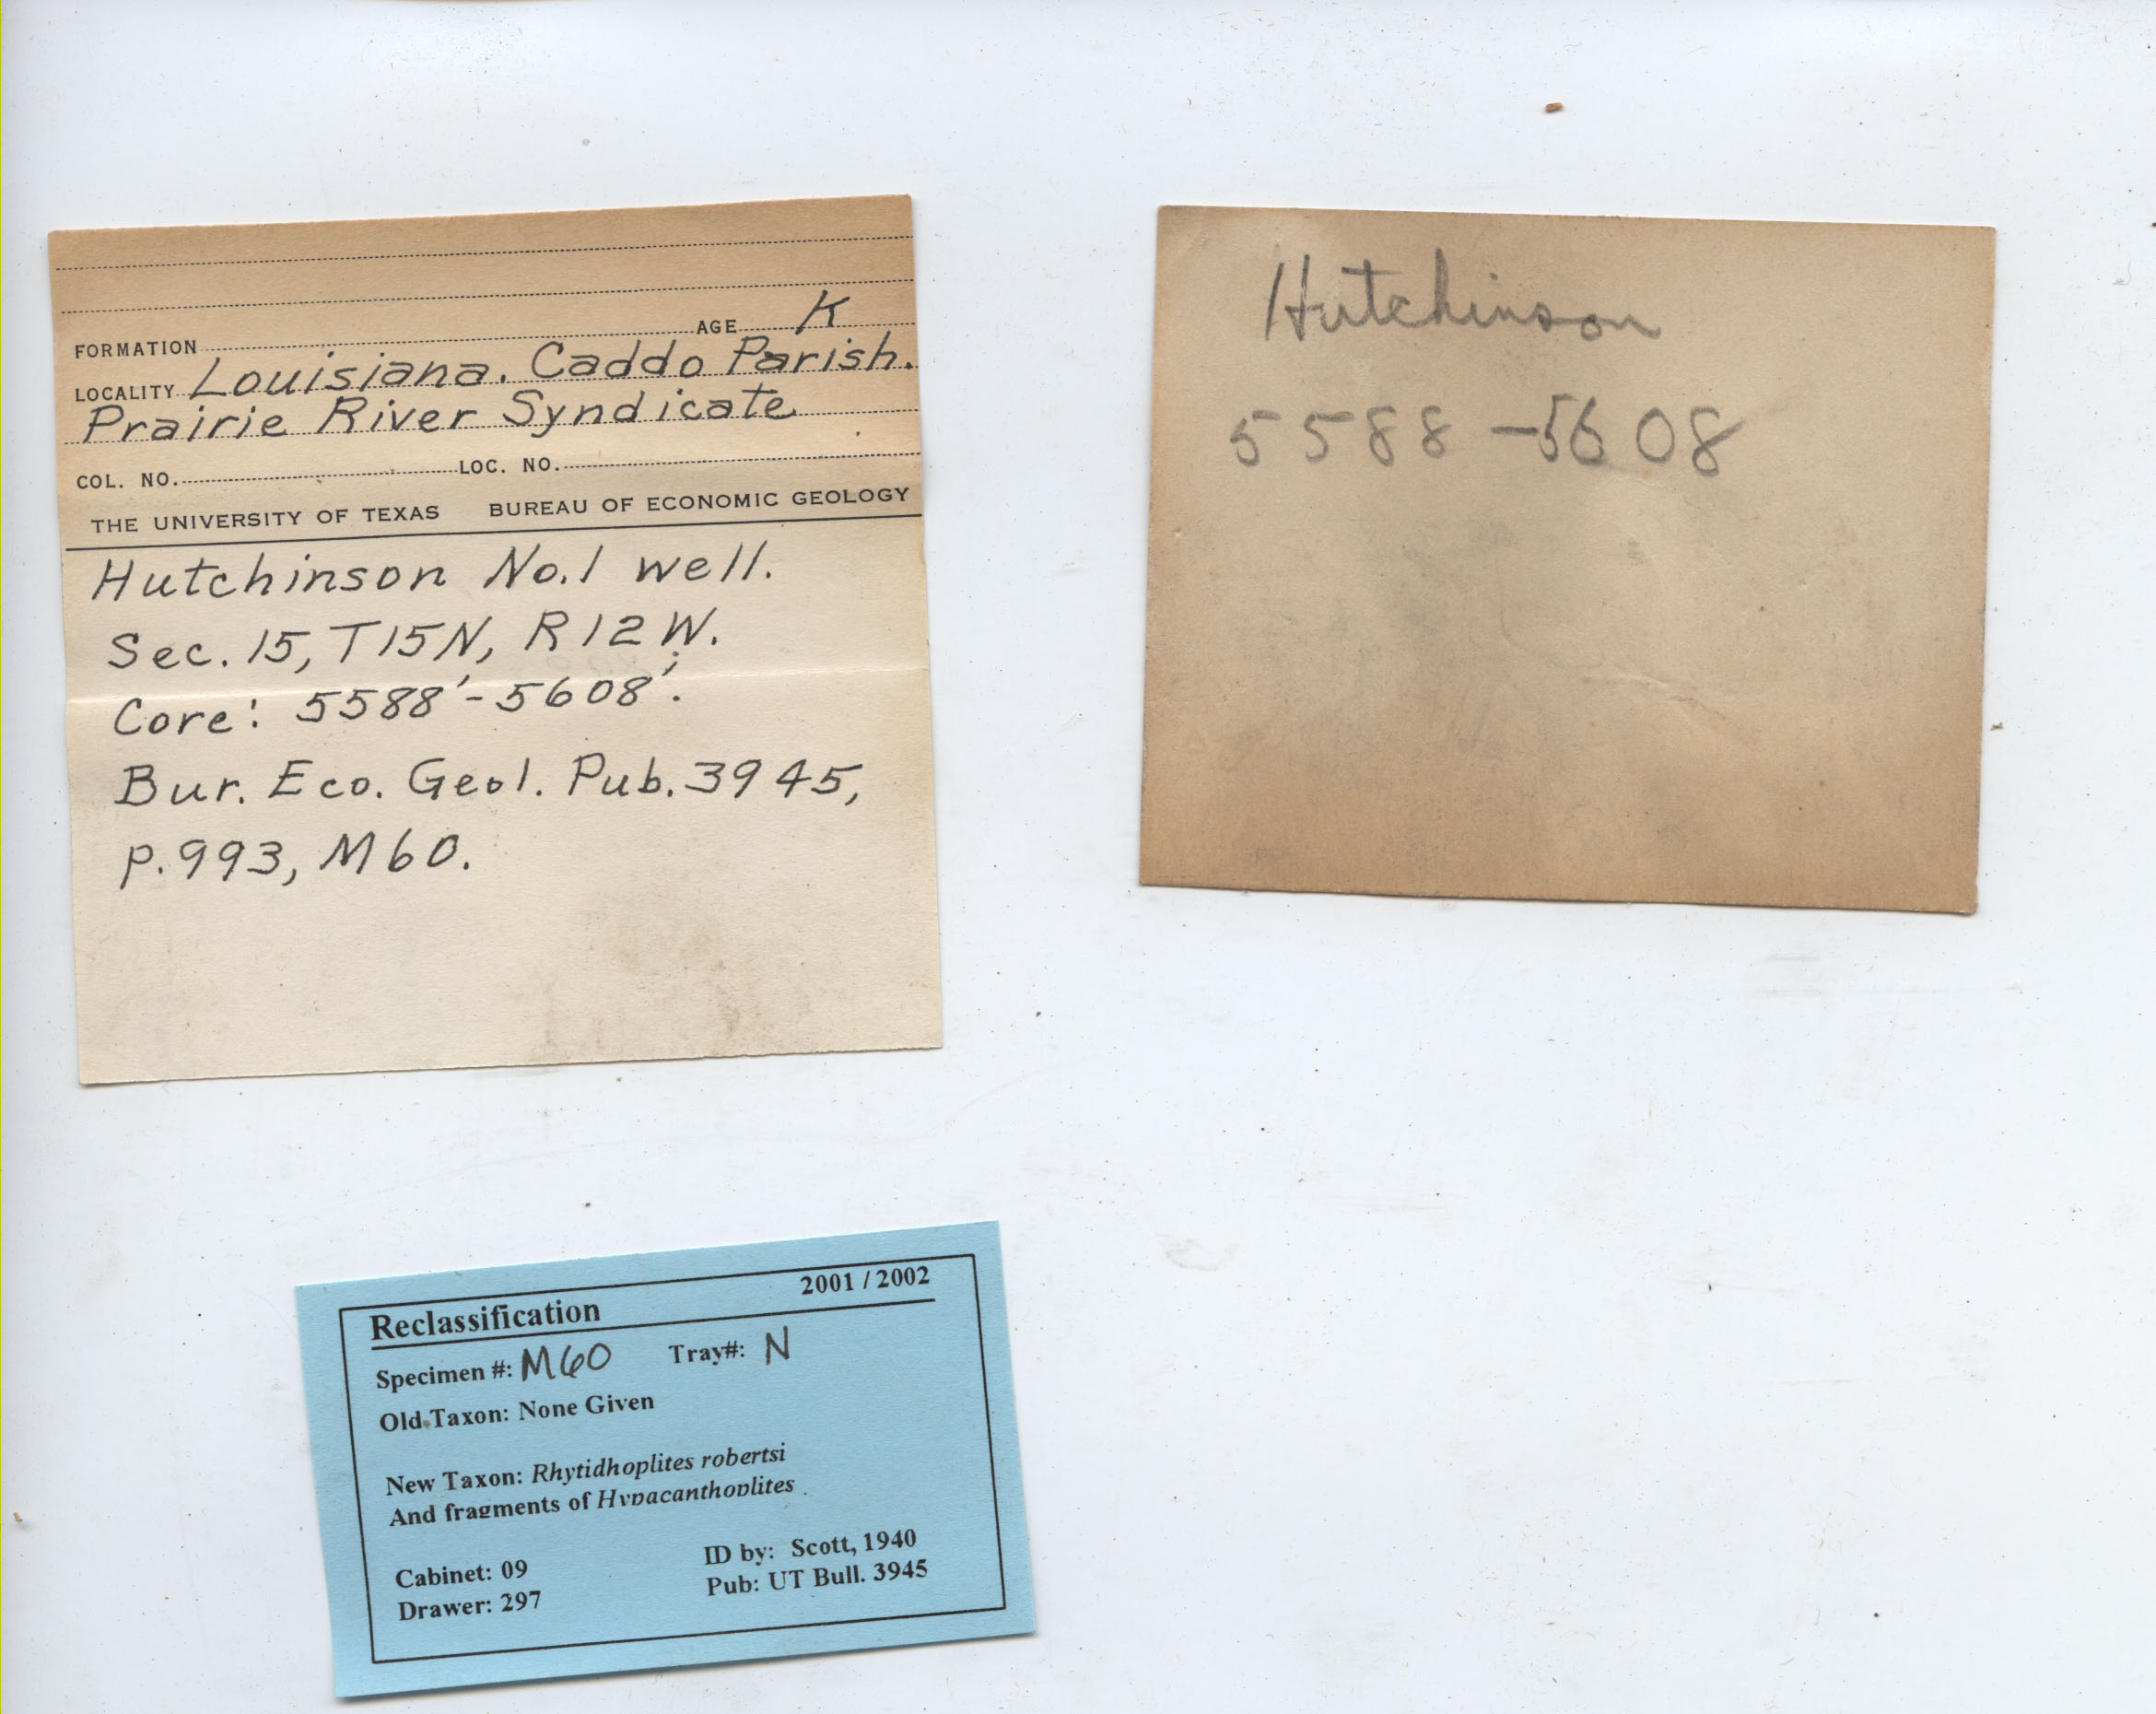 FORMATION AGE K
LOCALITY Louisiana. Caddo Parish.
Prairie River Syndicate
COL. NO. LOC. NO.
THE UNIVERSITY OF TEXAS BUREAU OF ECONOMIC GEOLOGY
Hutchinson No.1 well.
Sec. 15, T15N, R12W.
Core: 5588'-5608'.
Bur. Eco. Geol. Pub. 3945,
p.993, M60.
Hutchinson
5588-5608
Reclassification 2001 / 2002
Specimen #: M60 Tray#: N
Old Taxon: None Given
New Taxon: Rhytidhoplites robertsi
And fragments of Hypacanthoplites
Cabinet: 09 ID by: Scott, 1940
Drawer: 297 Pub: UT Bull. 3945